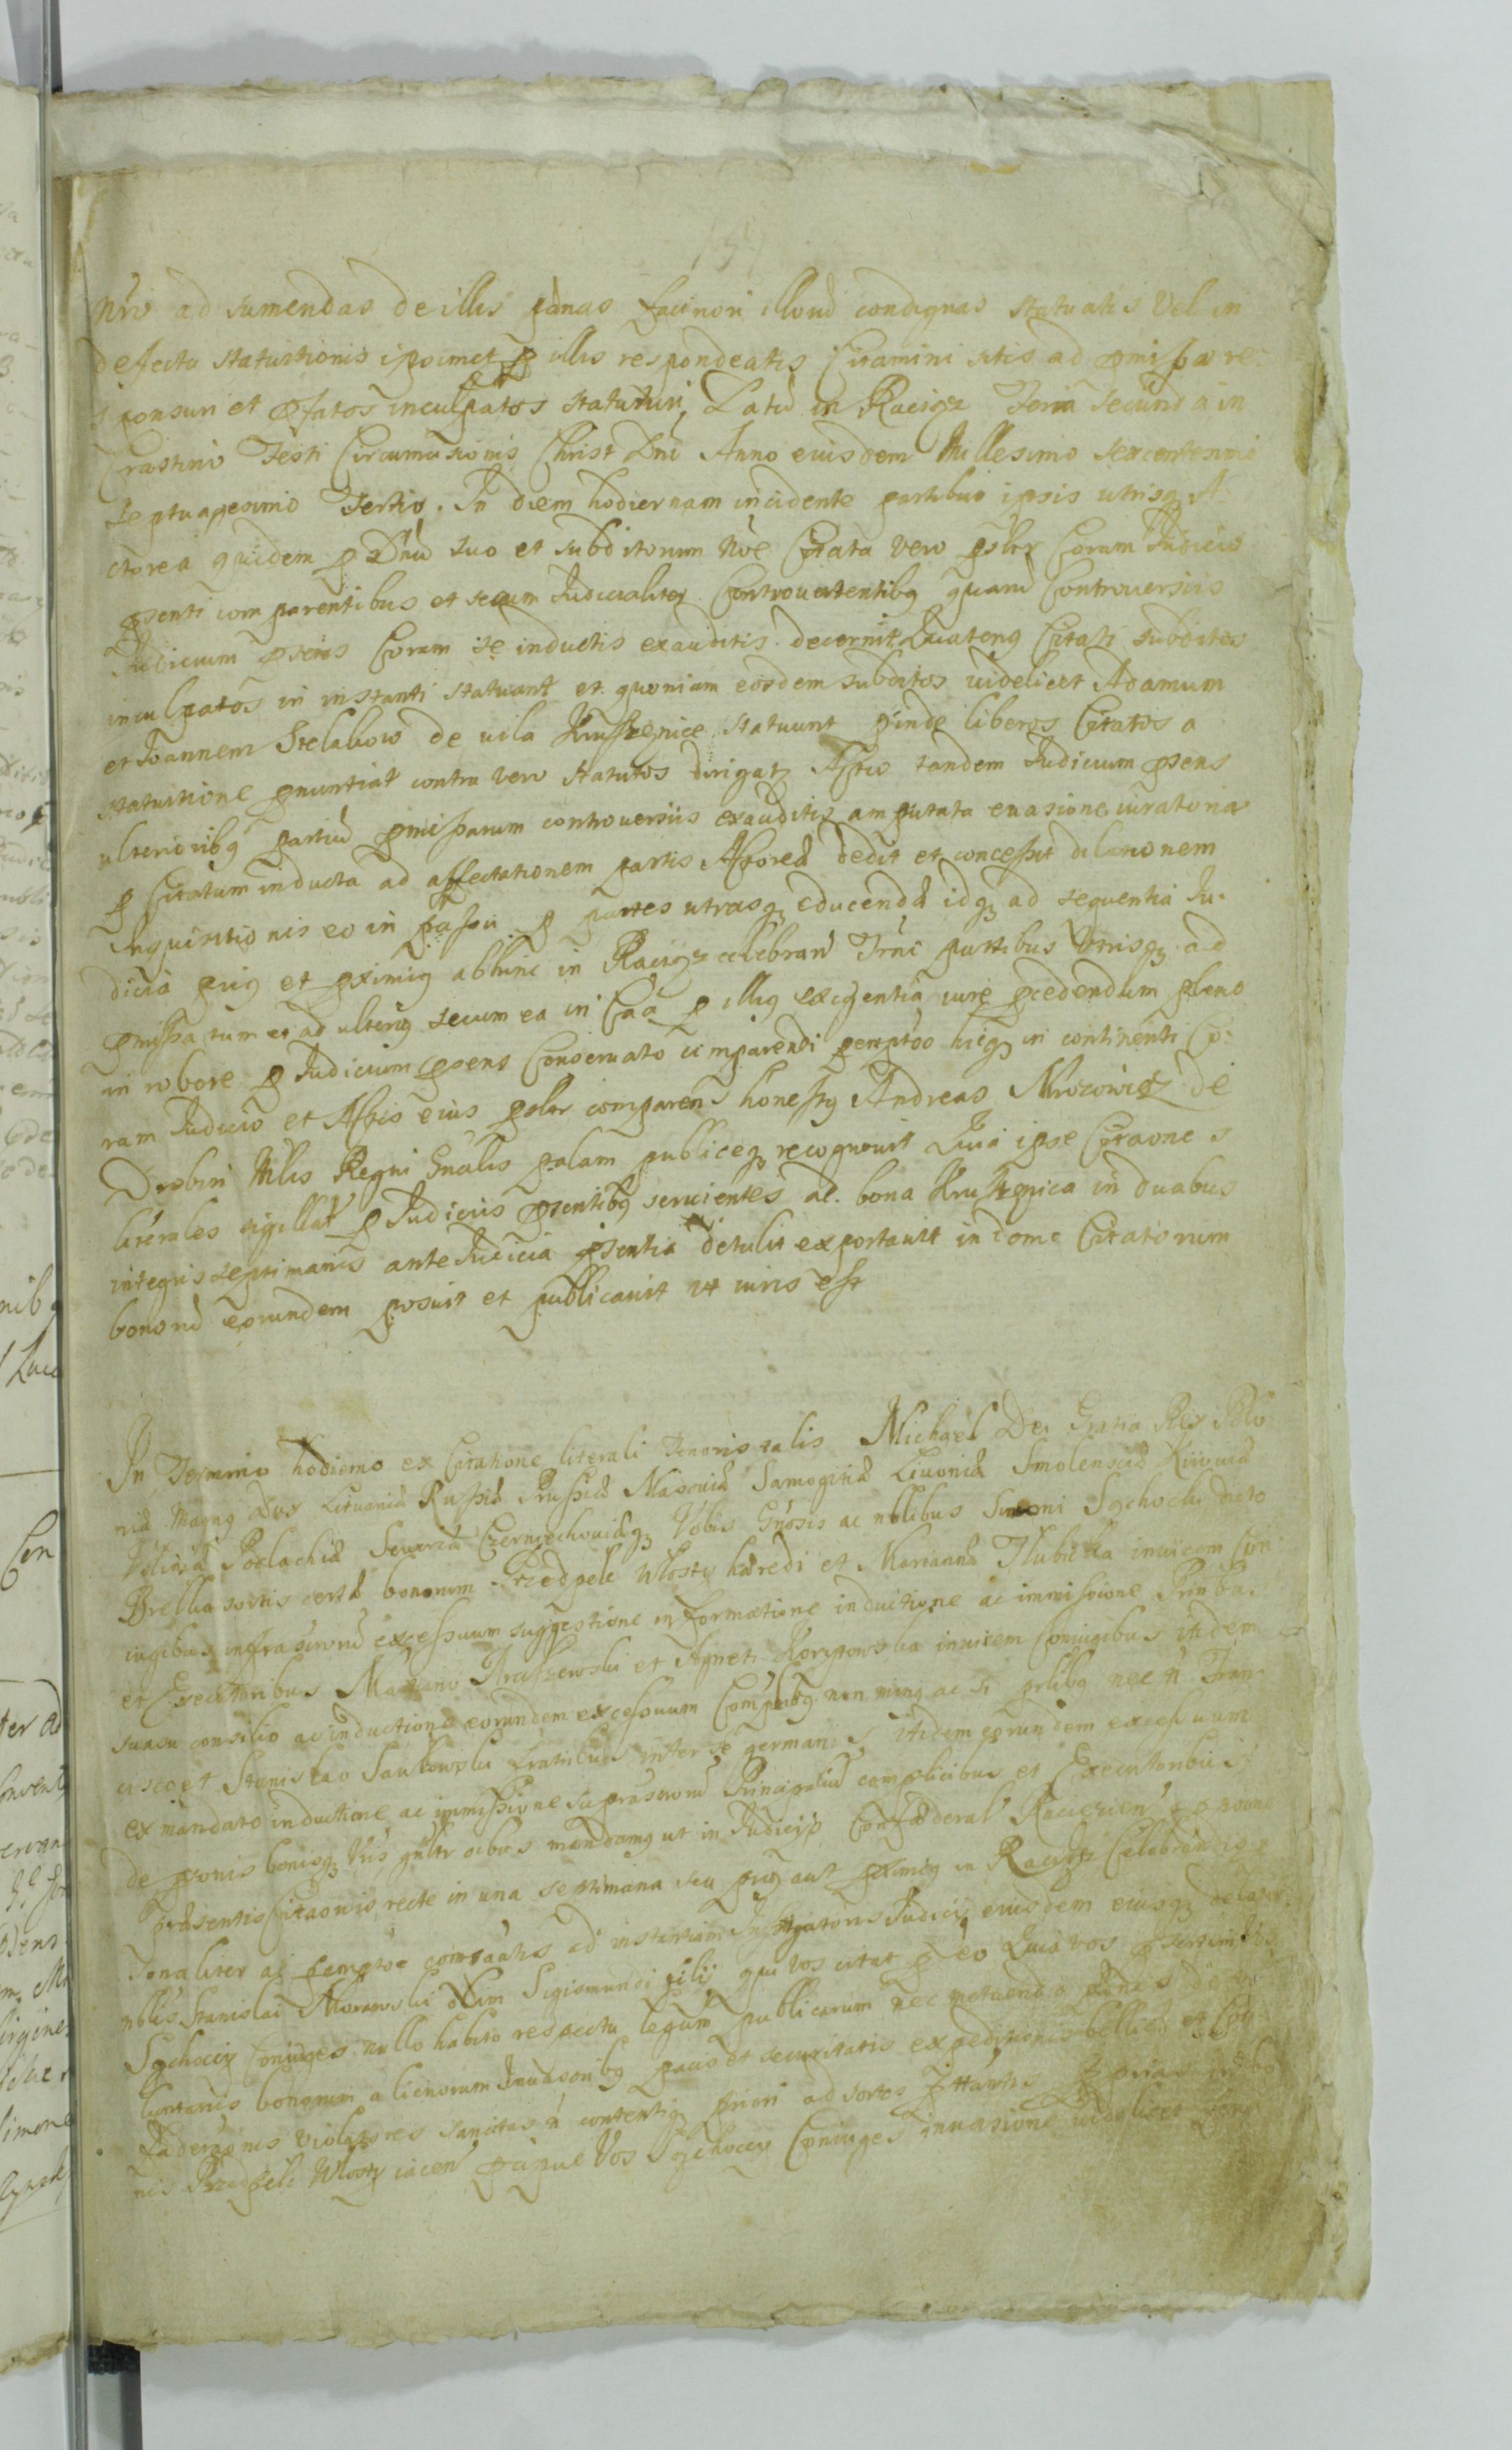 nro ad sumendas de illis pænas facinori illorũ condignas statuatis Vel in
defectu statuitionis ipsimet p illis respondeatis Citamini sitis ad pmissa re-
sponsuri et pfatos inculpatos statuturi. Datũ in Raciąz Feria Secunda in
Crastino Festi Circumcisionis Christi Dni Anno eiusdem Millesimo sexcentesimo
Septuagesimo Tertio. In diem hodiernam incidente partibus ipsis utrisq A-
ctorea quidem p Dnũ suo et subditorum Noĩe Citata vero psolr Coram Judicio
psenti comparentibus et secum Judicialiter Controvertentibq quarũ Controversiis
Judicium psens Coram se inductis exauditis decernit Quatenq Citati subditos
inculpatos in instanti statuant et quoniam eosdem subditos videlicet Adamum
et Joannem Stelakow de villa Kruszenice statuunt pinde liberos Citatos a
statuitione pnuntiat contra vero statutos dirigat Actio tandem Judicium psens
ulterioribq partiũ pmissarum controversiis exauditis amputata evasione iuratoria
p Citatum inducta ad affectationem partis Actoreæ dedit et concessit dilationem
Inquisitionis eo in passu p partes utrasq educendæ idq ad sequentia Ju-
dicia priq et pximiq abhinc in Raciąz celebran Trñũ partibus Utrisq ad
pmissa tum et ad ulteriq secum ea in Caa p illiq exigentia iure pcedendum pleno
in robore p Judicium psens Conservato comparendi pemptoe hicq in continenti Co-
ram Judicio et Actis eius psolr comparens honestq Andreas Mrozowicz de
Drobin Mlis Regni Gnalis palam publiceq recognovit Quia ipse Citaones
literales sigillat p Judiciis psentibq servientes ad bona Kruszenica in duabus
integris septimanis ante Judicia psentia detulit exportavit in domo Citatorum
bonorũ eorundem posuit et publicavit ut iuris est
In Termino hodierno ex Citatione literali Tenoris talis Michael Dei Gratia Rex Polo
niæ Magnq Dux Lituaniæ Russiæ Prussiæ Masoviæ Samogitiæ Livoniæ Smolensciæ Kijoviæ
Voliniæ Podlachiæ Severiæ Czerniechoviæq Vobis Gnosis ac nblibus Simoni Sychocki dicto
Brellia sortis certæ bonorum Przedpełe Włosty hæredi et Mariannæ Hubicka invicem Con-
iugibus infrascriorũ excessuum suggestione informatione inductione ac immissione Pron
et Executoribus Mariano Kraszewski et Agneti Korzytowska invicem Coniugibus itidem
suasu consilio ac inductione eorundem excessuum Complicibq non minq ac principalibq nec n Fran-
cisco et Stanislao Sankowski fratribus inter se germanis itidem eorundem excessuum
ex mandato inductione ac immissione suprascriorũ Principaliũ complicibus et Executoribus
de psonis bonisq Vris gnlr oibus mandamq ut in Judicijs Confæderal Raciezien a pisione
præsentis Citaonis recte in una septimana seu priq aut pximiq in Raciąz Celebrandis p
sonaliter ac pemptoe compareatis ad instantiam Instigatoris Judicij eiusdem eiusq delatoris
nblis Stanislai Morawski olim Sigismundi filij qui vos citat p eo Quia vos psertim Vos
Sychoccy Coniuges nullo habito respectu legum publicarum nec metuendo pænas de vo
luntariis bonorum alienorum Invasoribq pacis et securitatis expeditionis bellicæ et Con
fæderaonis violatores sancitas n contentiq priori ad sortes pttantis pprias in bo
nis Przedpełe Włosty iacen pcipue Vos Sychoccy Coniuges invasione videlicet